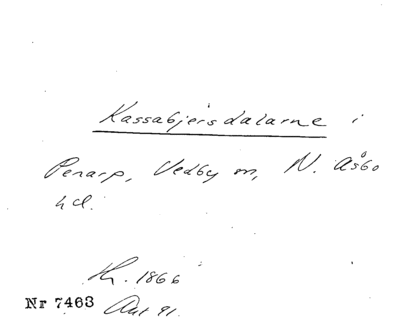 Kassabjersdalarne i
Penarp, Vedby sn, N. Åsbo
hd.
Kr. 1866
Nr 7463 Aut 91.